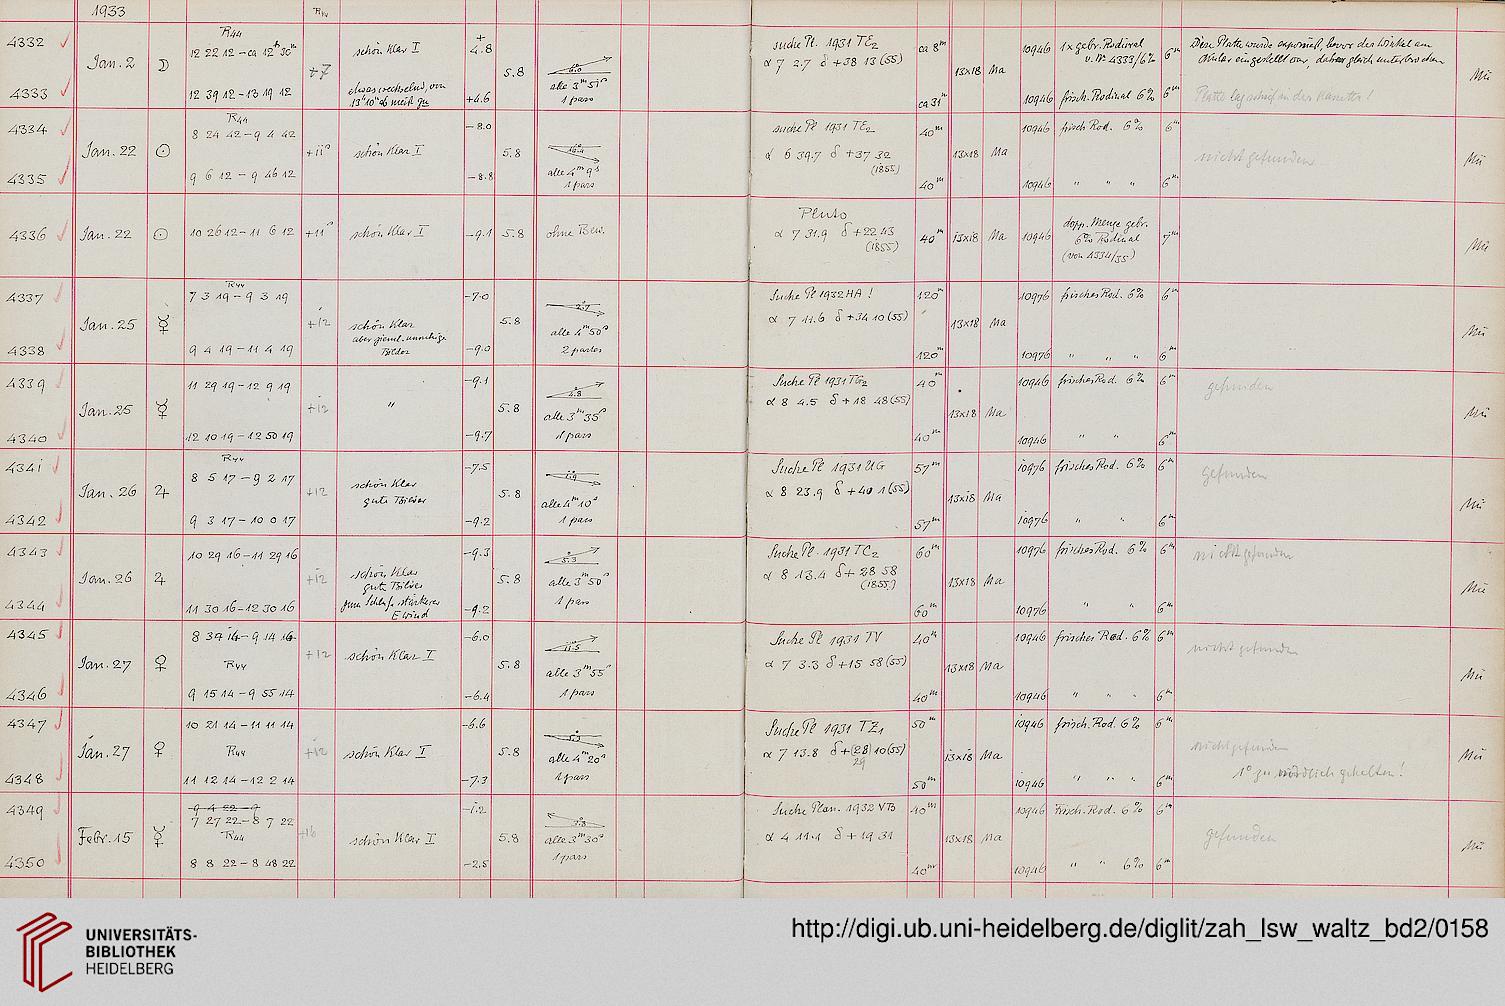 1933
4332
Jan. 2
R44
12 22 12 – ca 12h 30m
+7
schön klar I
+
4.8
5.8
6.0
alle 3m 51s
1 pars
suche Pl. 1931 TE2
α 7 2.7 δ +38 13 (55)
ca 8m
13x18
Ma
10946
1x gebr. Rodinal
v. Nr 4333/6%
6m
Mü
4333
12 39 12 – 13 19 12
etwas wechselnd, von
+4.6
ca 31m
10946
frisch. Rodinal 6%
6m
4334
Jan. 22
R44
8 24 42 – 9 4 42
+11°
schön klar I
–8.0
5.8
alle 4m 9s
1 pars
suche Pl 1931 TE2
α 6 39.7 δ +37 32
(1855)
40m
13x18
Ma
10946
frisch Rod. 6%
6m
nicht gefunden
Mü
4335
9 6 12 – 9 46 12
–8.8
40m
10946
" " "
6m
4336
Jan. 22
10 26 12 – 11 6 12
+11°
schön klar I
–9.1
5.8
ohne Bew.
Pluto
α 7 31.9 δ +22 43
(1855)
40m
13x18
Ma
10946
dopp. Menge gebr.
6% Rodinal
(von 4334/35)
7m
Mü
4337
Jan. 25
R44
7 3 19 – 9 3 19
+12
schön klar
aber zieml. unruhige
Bilder
–7.0
5.8
2.7
alle 4m 50s
2 partes
Suche Pl 1932 HA !
α 7 11.6 δ +34 10 (55)
120m
13x18
Ma
10976
frisches Rod. 6%
6m
Mü
4338
9 4 19 – 11 4 19
–9.0
120m
10976
" " "
6m
4339
Jan. 25
11 29 19 – 12 9 19
+12
"
–9.1
5.8
4.8
alle 3m 35s
1 pars
Suche Pl 1931 TG2
α 8 4.5 δ +18 48 (55)
40m
13x18
Ma
10946
frisches Rod. 6%
6m
gefunden
Mü
4340
12 10 19 – 12 50 19
–9.7
40m
10946
" "
6m
4341
Jan. 26
R44
8 5 17 – 9 2 17
+12
schön klar
gute Bilder
–7.5
5.8
1.9
alle 4m 10s
1 pars
Suche Pl 1931 UG
α 8 23.9 δ +40 1 (55)
57m
13x18
Ma
10976
frisches Rod. 6%
6m
gefunden
Mü
4342
9 3 17 – 10 0 17
–9.2
57m
10976
" "
6m
4343
Jan. 26
10 29 16 – 11 29 16
+12
schön klar
gute Bilder
zum Schluß stärkerer
E wind
–9.3
5.8
5.3
alle 3m 50s
1 pars
Suche Pl. 1931 TC2
α 8 13.4 δ + 28 58
(1855)
60m
13x18
Ma
10976
frisches Rod. 6%
6m
nicht gefunden
Mü
4344
11 30 16 – 12 30 16
–9.2
60m
10976
" "
6m
4345
Jan. 27
8 34 14 – 9 14 14
R44
+12
schön klar I
–6.0
5.8
11.5
alle 3m 55s
1 pars
Suche Pl 1931 TV
α 7 3.3 δ +15 58 (55)
40m
13x18
Ma
10946
frisches Rod. 6%
6m
nicht gefunden
Mü
4346
9 15 14 – 9 55 14
–6.4
40m
10946
" " "
6m
4347
Jan. 27
10 21 14 – 11 11 14
R44
+12
schön klar I
–6.6
5.8
5.3
alle 4m 20s
1 pars
Suche Pl 1931 TZ1
α 7 13.8 δ +(28) 10 (55)
29
50m
13x18
Ma
10946
frisch. Rod. 6%
6m
nicht gefunden
1° zu nördlich gehalten!
Mü
4348
11 12 14 – 12 2 14
–7.3
50m
10946
" " "
6m
4349
Febr. 15
9 4 22 – 9
7 27 22 – 8 7 22
R44
+16
schön klar I
–1.2
5.8
alle 3m 30s
1 pars
Suche Plan. 1932 VB
α 4 11.1 δ +19 31
40m
13x18
Ma
10946
Frisch. Rod. 6%
6m
gefunden
Mü
4350
8 8 22 – 8 48 22
–2.5
40m
10946
" " 6%
6m
UNIVERSITÄTS-
BIBLIOTHEK
HEIDELBERG
http://digi.ub.uni-heidelberg.de/diglit/zah_lsw_waltz_bd2/0158